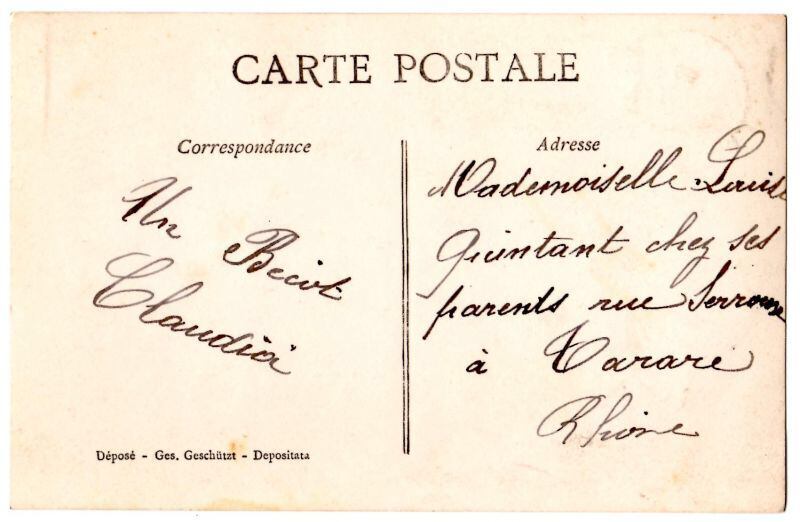 CARTE POSTALE
Correspondance
Un Becot
Claudia
Adresse
Mademoiselle Louise
Quintant chez ses
parents rue
à Tarare
Rhône
Déposé - Ges. Geschützt - Depositata